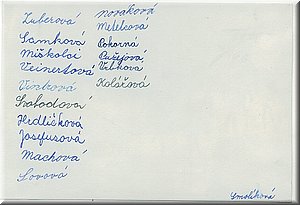 Zuberová
Samková
Miškolci
Weinertová
Vinková
Svobodová
Hrdličková
Josefusová
Machová
Sovová
Nováková
Metelcová
Pokorná
Ružejová
Vrbková
Kolářová
Smolíková